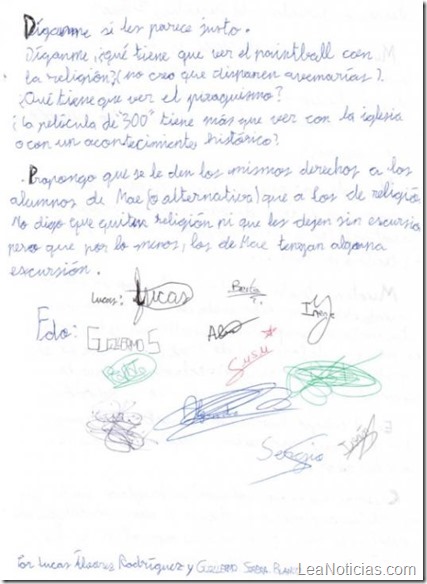 Díganme si les parece justo.
Díganme, ¿qué tiene que ver el paintball con
la religión? (no creo que disparen avemarías).
¿Qué tiene que ver el piragüismo?
¿La película de "300" tiene más que ver con la iglesia
o con un acontecimiento histórico?
.Propongo que se le den los mismos derechos a los
alumnos de Mae (o alternativa) que a los de religión
No digo que quiten religión ni que les dejen sin excursión
pero que por lo menos, los de Mae tengan alguna
excursión.
Lucas: Lucas
Fdo: GUILLERMO S
Susu
Sergio
Por Lucas Álvarez Rodríguez y GUILLERMO
LeaNoticias.com